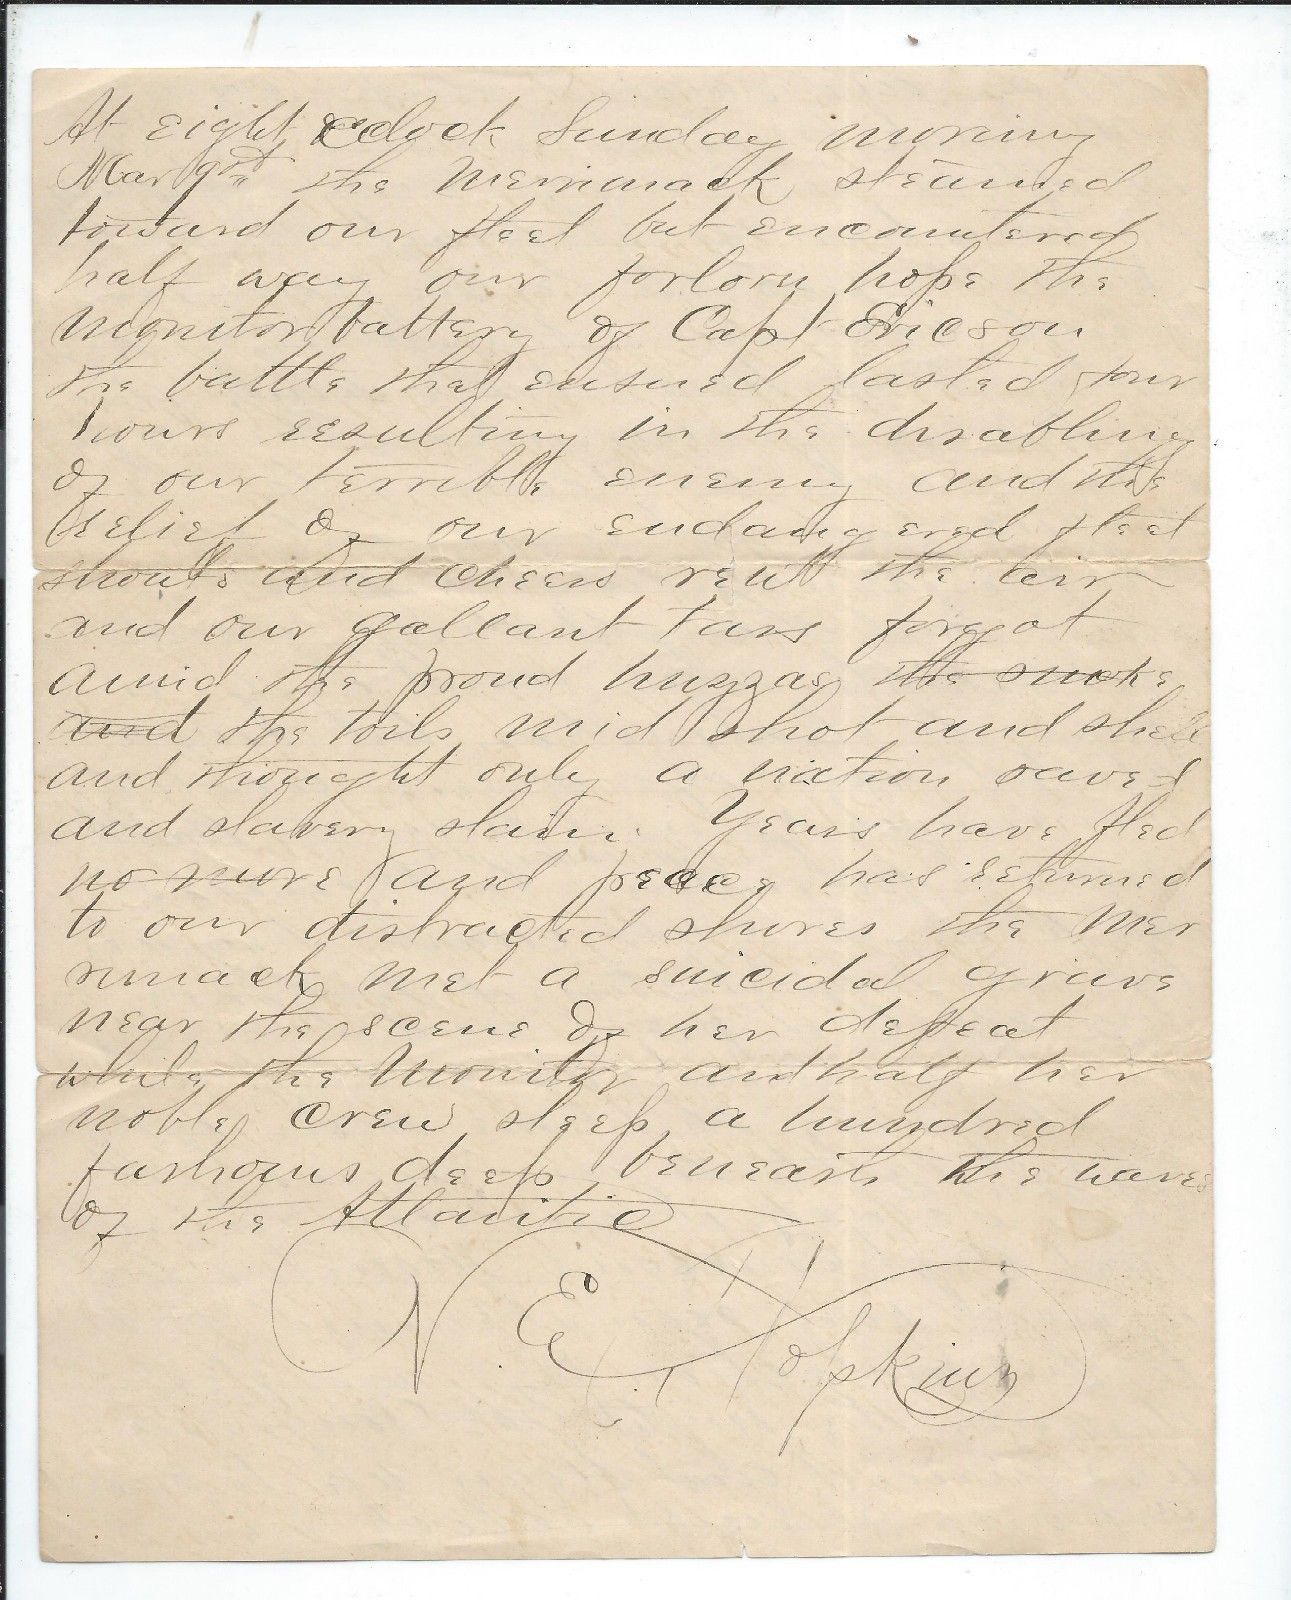 At eight oclock Sunday morning
Mar 9th the Merrimack steamed
toward our fleet but encountered
half way our forlorn hope the
Monitor battery of Capt Ericson
the battle that ensued lasted four
hours resulting in the disabling
of our terrible enemy and the
relief of our endangered fleet
shouts and cheers rent the air
and our gallant tars forgot
amid the proud huzzas the smoke
and the toils mid shot and shell
and thought only a nation saved
and slavery slain. Years have fled
no more and peace has returned
to our distracted shores the Mer
rimack met a suicidal grave
near the scene of her defeat
while the Monitor and half her
noble crew sleep a hundred
fathoms deep beneath the waves
of the Atlantic
N. E. Hopkins